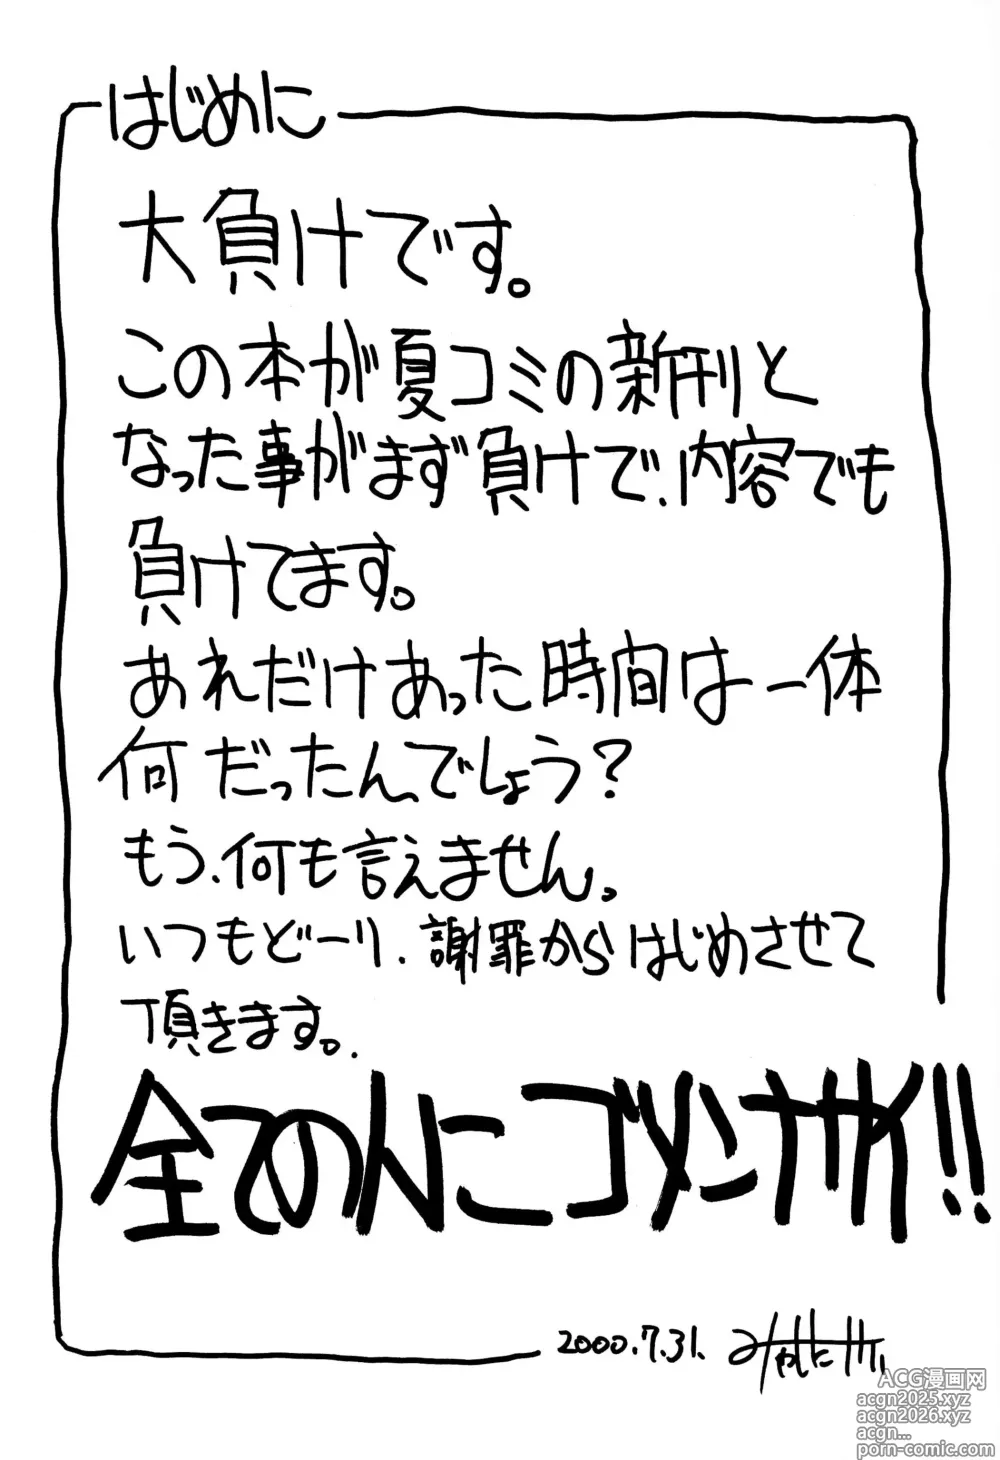 はじめに
大負けです。
この本が夏コミの新刊と
なった事がまず負けで、内容でも
負けてます。
あれだけあった時間は一体
何だったんでしょう?
もう、何も言えません。
いつもどーり、謝罪からはじめさせて
頂きます。
全てのんにゴメンナサイ!!
2000.7.31.
ACG漫画网
acgn2025.xyz
acgn2026.xyz
acgn...
porn-comic.com